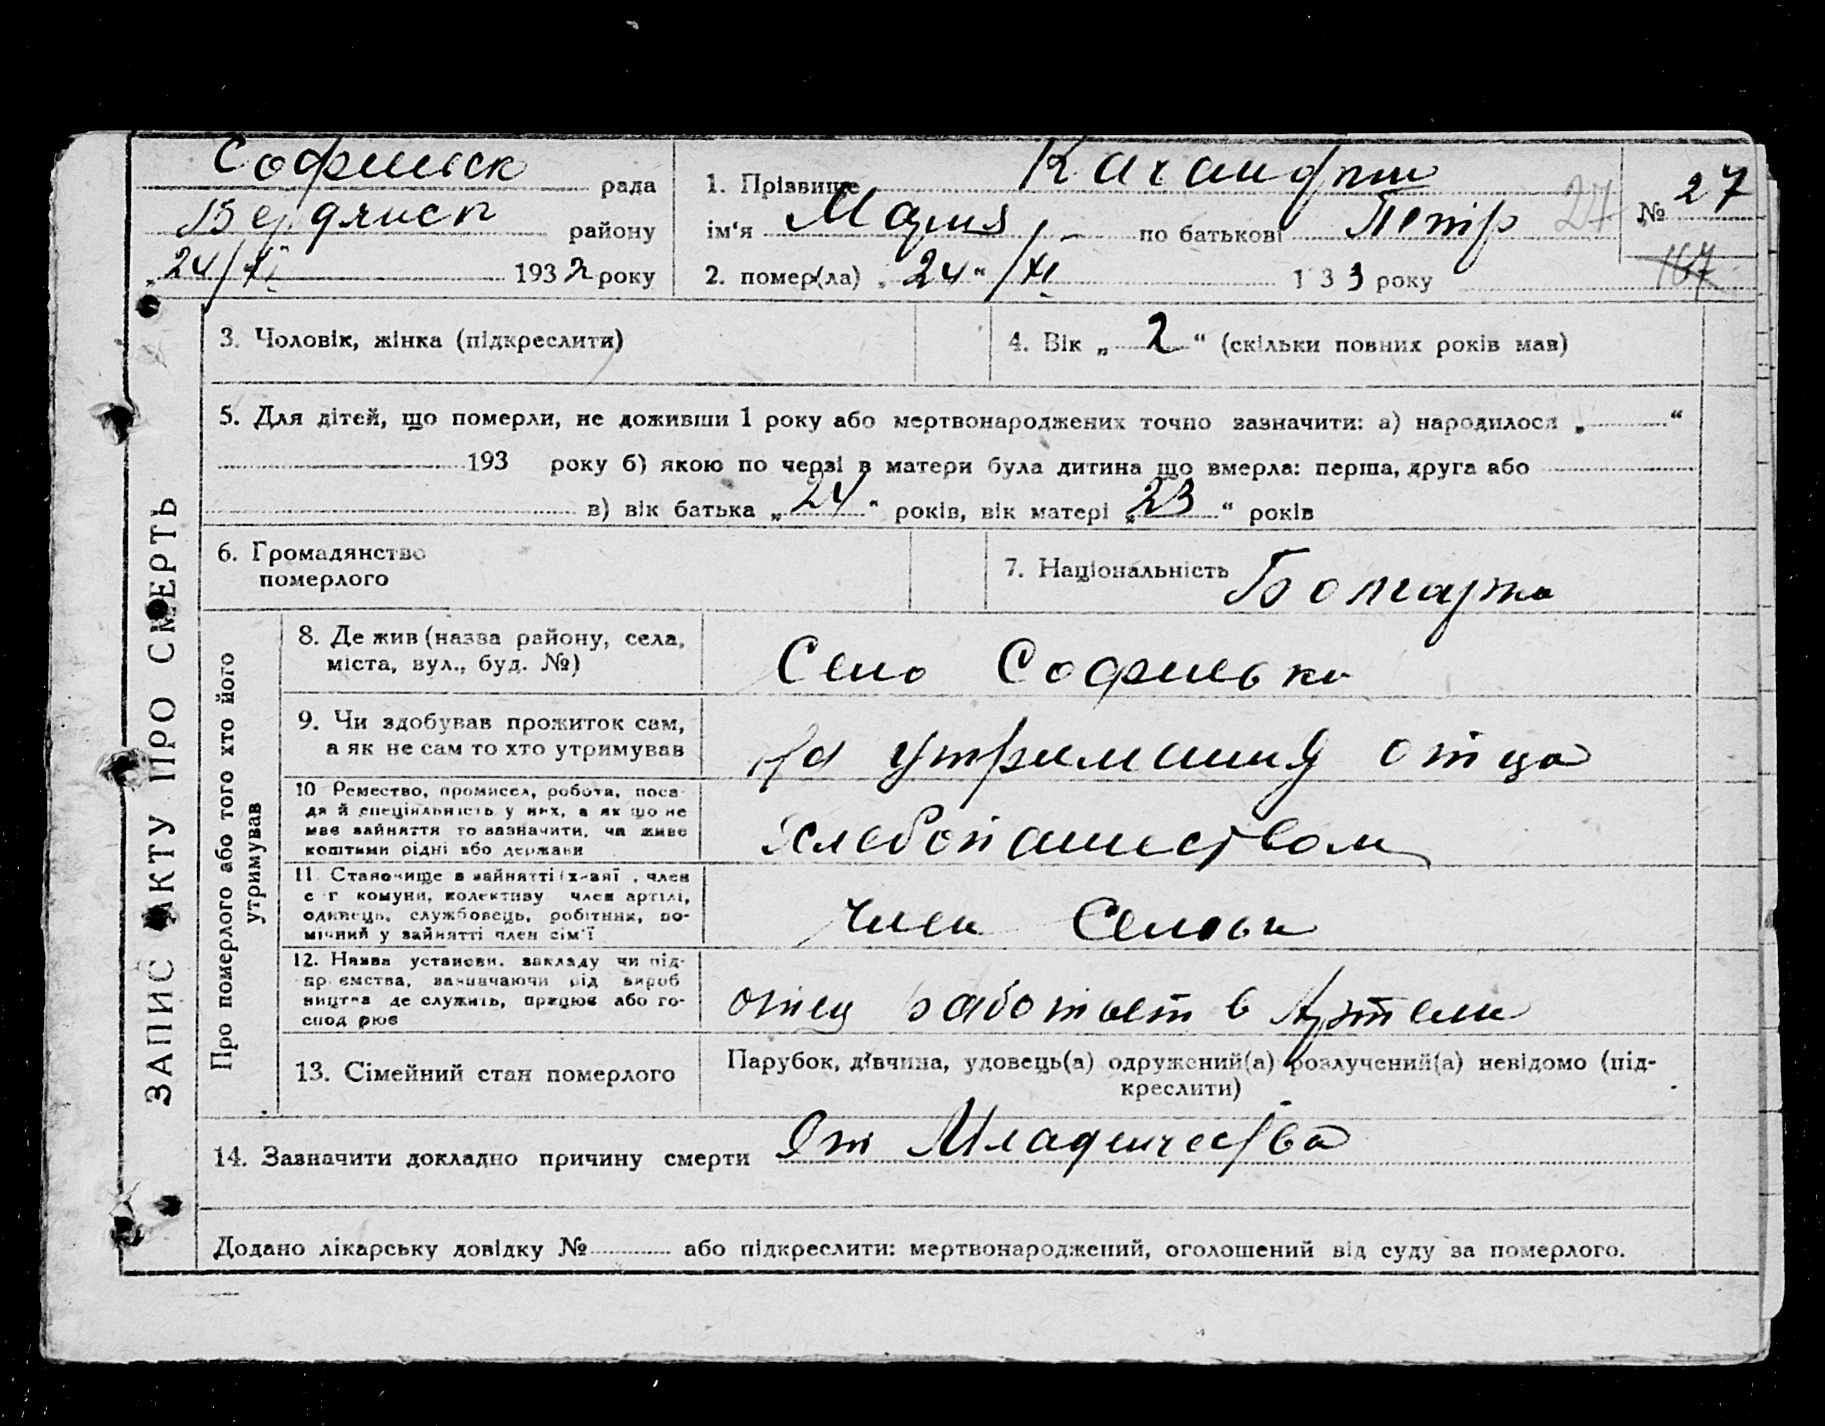 Софиевск рада
Бердянск району
„24/XI 1932 року
1. Прізвище
ім'я Мария по батькові Петір
2. помер(ла) „24“/XI 133 року
27 № 27
167
3. Чоловік, жінка (підкреслити)
4. Вік „2“ (скільки повних років мав)
5. Для дітей, що померли, не доживши 1 року або мертвонароджених точно зазначити: а) народилося „ “
193 року б) якою по черзі в матери була дитина що вмерла: перша, друга або
в) вік батька „24“ років, вік матері „23“ років
6. Громадянство
померлого
7. Національність Болгарка
ЗАПИС АКТУ ПРО СМЕРТЬ
Про померлого або того хто його
утримував
8. Де жив (назва району, села,
міста, вул., буд. №)
Село Софиевка
9. Чи здобував прожиток сам,
а як не сам то хто утримував
На утримании отца
10 Ремество, промисел, робота, поса-
да й спеціяльність у них, а як що не
має зайняття то зазначити, чи живе
коштами рідні або держави
Хлебопашеством
11. Становище в зайнятті (х-зяї , член
с г комуни, колективу член артілі,
одинець, службовець, робітник, по-
мічний у зайнятті член сім'ї
член
12. Назва установи, закладу чи під-
пр ємства, зазначаючи рід вироб
ництва де служить, працює або го-
спод рює
отец работает в Артели
13. Сімейний стан померлого
Парубок, дівчина, удовець(а) одружений(а) розлучений(а) невідомо (під-
креслити)
14. Зазначити докладно причину смерти От Младенчества
Додано лікарську довідку № або підкреслити: мертвонароджений, оголошений від суду за померлого.